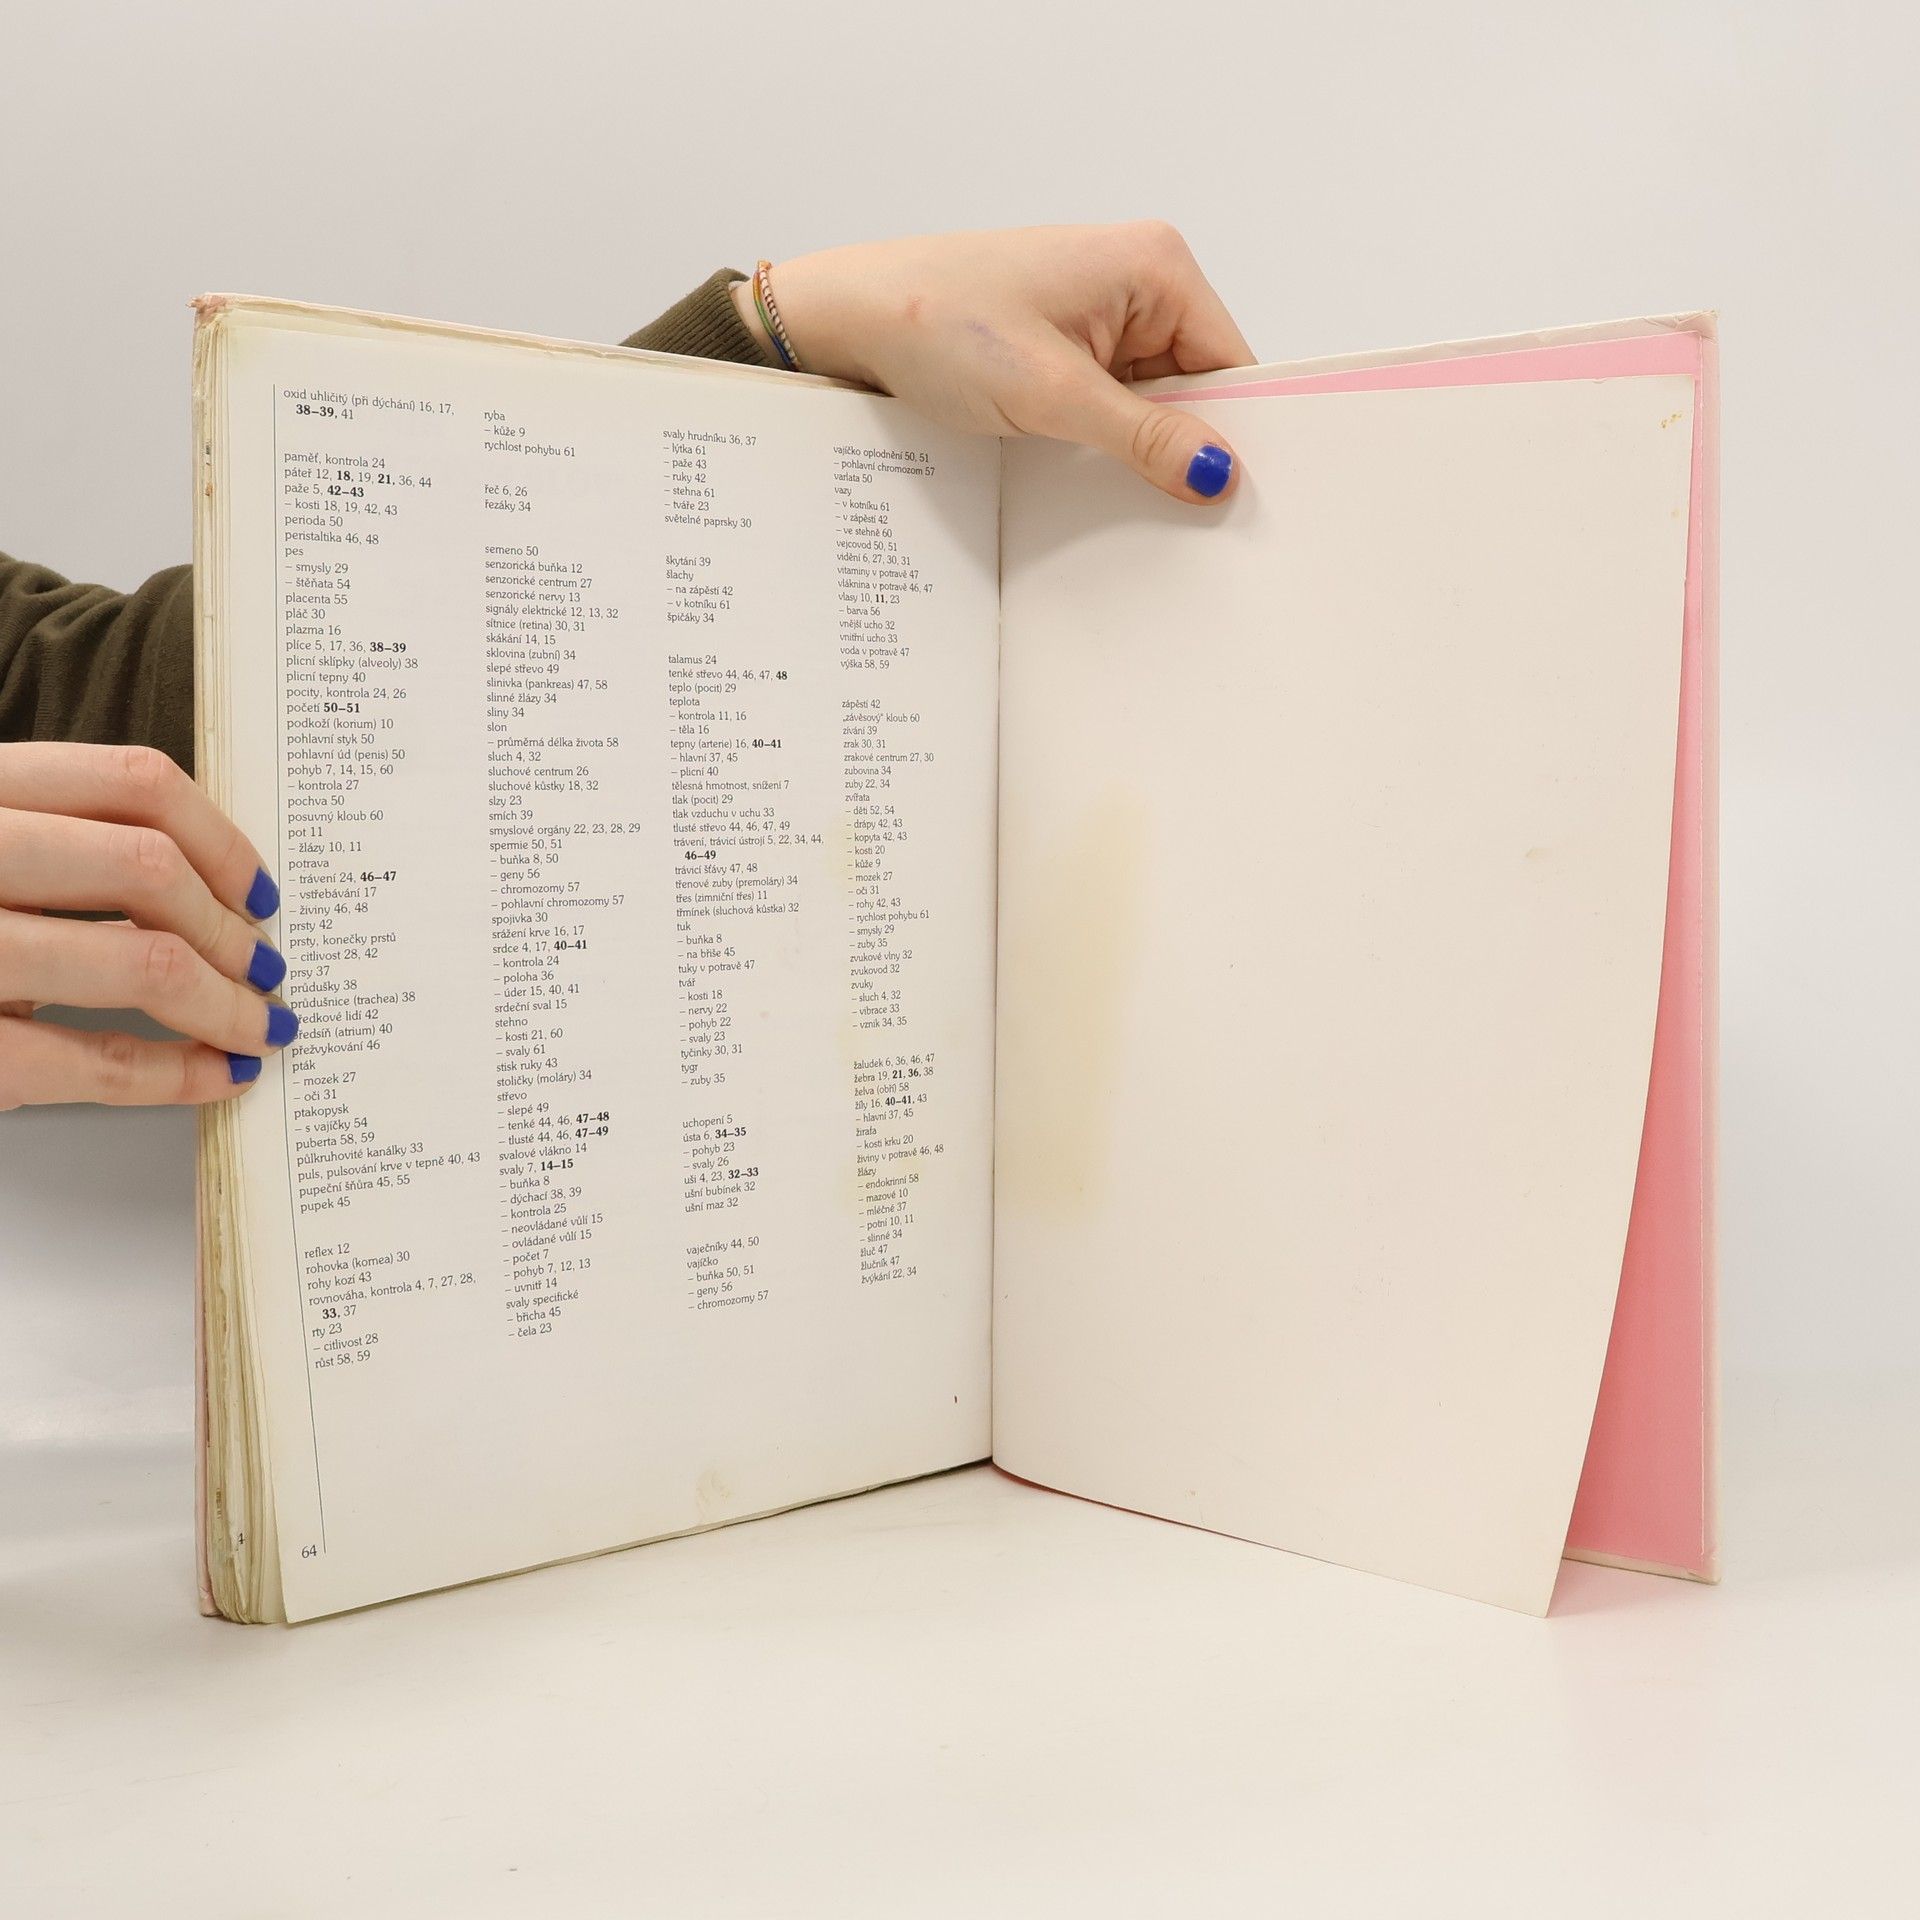 oxid uhličitý (při dýchání) 16, 17,
38–39, 41
paměť, kontrola 24
páteř 12, 18, 19, 21, 36, 44
paže 5, 42–43
– kosti 18, 19, 42, 43
perioda 50
peristaltika 46, 48
pes
– smysly 29
– štěňata 54
placenta 55
pláč 30
plazma 16
plíce 5, 17, 36, 38–39
plicní sklípky (alveoly) 38
plicní tepny 40
pocity, kontrola 24, 26
početí 50–51
podkoží (korium) 10
pohlavní styk 50
pohlavní úd (penis) 50
pohyb 7, 14, 15, 60
– kontrola 27
pochva 50
posuvný kloub 60
pot 11
– žlázy 10, 11
potrava
– trávení 24, 46–47
– vstřebávání 17
– živiny 46, 48
prsty 42
prsty, konečky prstů
– citlivost 28, 42
prsy 37
průdušky 38
průdušnice (trachea) 38
ředkové lidí 42
ředsíň (atrium) 40
přežvykování 46
pták
– mozek 27
– oči 31
ptakopysk
– s vajíčky 54
puberta 58, 59
půlkruhovité kanálky 33
puls, pulsování krve v tepně 40, 43
pupeční šňůra 45, 55
pupek 45
reflex 12
rohovka (kornea) 30
rohy kozí 43
rovnováha, kontrola 4, 7, 27, 28,
33, 37
rty 23
– citlivost 28
růst 58, 59
64
4
ryba
– kůže 9
rychlost pohybu 61
řeč 6, 26
řezáky 34
semeno 50
senzorická buňka 12
senzorické centrum 27
senzorické nervy 13
signály elektrické 12, 13, 32
sítnice (retina) 30, 31
skákání 14, 15
sklovina (zubní) 34
slepé střevo 49
slinivka (pankreas) 47, 58
slinné žlázy 34
sliny 34
slon
– průměrná délka života 58
sluch 4, 32
sluchové centrum 26
sluchové kůstky 18, 32
slzy 23
smích 39
smyslové orgány 22, 23, 28, 29
spermie 50, 51
– buňka 8, 50
– geny 56
– chromozomy 57
– pohlavní chromozomy 57
spojivka 30
srážení krve 16, 17
srdce 4, 17, 40–41
– kontrola 24
– poloha 36
– úder 15, 40, 41
srdeční sval 15
stehno
– kosti 21, 60
– svaly 61
stisk ruky 43
stoličky (moláry) 34
střevo
– slepé 49
– tenké 44, 46, 47–48
– tlusté 44, 46, 47–49
svalové vlákno 14
svaly 7, 14–15
– buňka 8
– dýchací 38, 39
– kontrola 25
– neovládané vůlí 15
– ovládané vůlí 15
– počet 7
– pohyb 7, 12, 13
– uvnitř 14
svaly specifické
– břicha 45
– čela 23
svaly hrudníku 36, 37
– lýtka 61
– paže 43
– ruky 42
– stehna 61
– tváře 23
světelné paprsky 30
škytání 39
šlachy
– na zápěstí 42
– v kotníku 61
špičáky 34
talamus 24
tenké střevo 44, 46, 47, 48
teplo (pocit) 29
teplota
– kontrola 11, 16
– těla 16
tepny (arterie) 16, 40–41
– hlavní 37, 45
– plicní 40
tělesná hmotnost, snížení 7
tlak (pocit) 29
tlak vzduchu v uchu 33
tlusté střevo 44, 46, 47, 49
trávení, trávicí ústrojí 5, 22, 34, 44,
46–49
trávicí šťávy 47, 48
třenové zuby (premoláry) 34
třes (zimniční třes) 11
třmínek (sluchová kůstka) 32
tuk
– buňka 8
– na břiše 45
tuky v potravě 47
tvář
– kosti 18
– nervy 22
– pohyb 22
– svaly 23
tyčinky 30, 31
tygr
– zuby 35
uchopení 5
ústa 6, 34–35
– pohyb 23
– svaly 26
uši 4, 23, 32–33
ušní bubínek 32
ušní maz 32
vaječníky 44, 50
vajíčko
– buňka 50, 51
– geny 56
– chromozomy 57
vajíčko oplodnění 50, 51
– pohlavní chromozom 57
varlata 50
vazy
– v kotníku 61
– v zápěstí 42
– ve stehně 60
vejcovod 50, 51
vidění 6, 27, 30, 31
vitaminy v potravě 47
vláknina v potravě 46, 47
vlasy 10, 11, 23
– barva 56
vnější ucho 32
vnitřní ucho 33
voda v potravě 47
výška 58, 59
zápěstí 42
„závěsový“ kloub 60
zívání 39
zrak 30, 31
zrakové centrum 27, 30
zubovina 34
zuby 22, 34
zvířata
– děti 52, 54
– drápy 42, 43
– kopyta 42, 43
– kosti 20
– kůže 9
– mozek 27
– oči 31
– rohy 42, 43
– rychlost pohybu 61
– smysly 29
– zuby 35
zvukové vlny 32
zvukovod 32
zvuky
– sluch 4, 32
– vibrace 33
– vznik 34, 35
žaludek 6, 36, 46, 47
žebra 19, 21, 36, 38
želva (obří) 58
žíly 16, 40–41, 43
– hlavní 37, 45
žirafa
– kosti krku 20
živiny v potravě 46, 48
žlázy
– endokrinní 58
– mazové 10
– mléčné 37
– potní 10, 11
– slinné 34
žluč 47
žlučník 47
žvýkání 22, 34